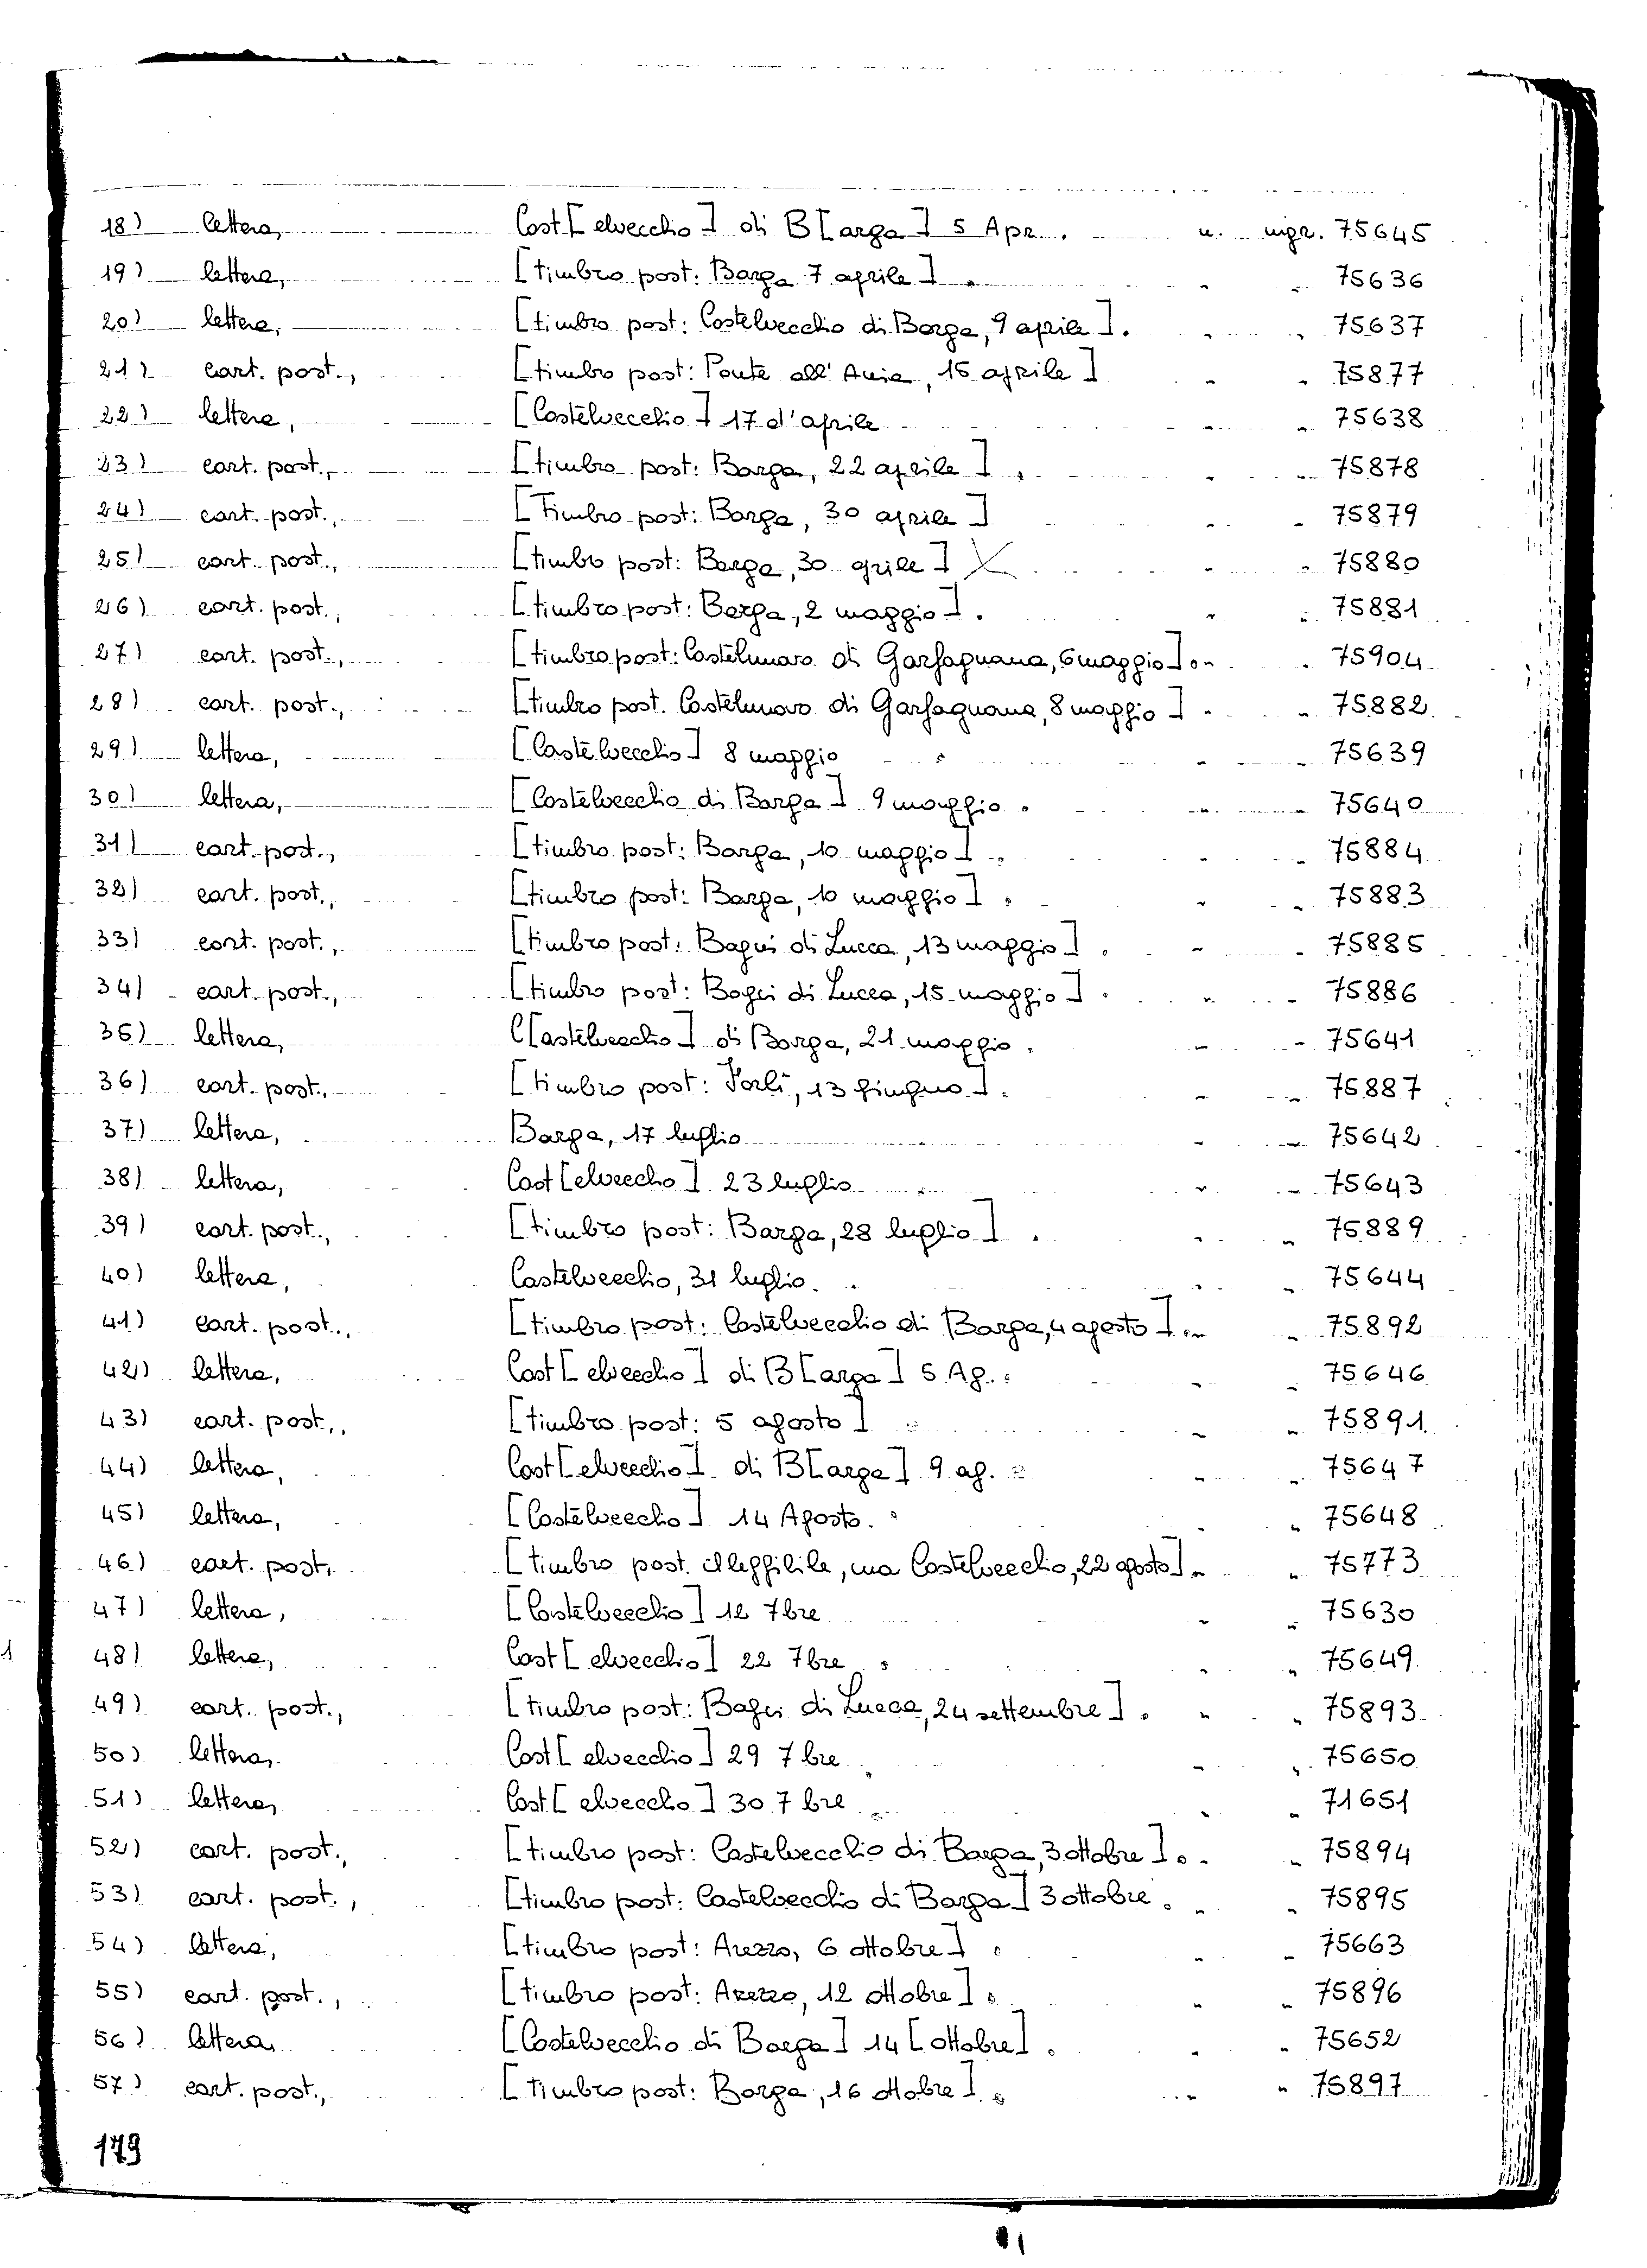 18) lettera, Cast[elvecchio] di B[arga] 5 Apr. n. ingr. 75645
19) lettera, [timbro post: Barga 7 aprile]. " " 75636
20) lettera, [timbro post: Castelvecchio di Barga, 9 aprile]. " " 75637
21) cart. post., [timbro post: Ponte all'Ania, 15 aprile] " " 75877
22) lettera, [Castelvecchio] 17 d'aprile " " 75638
23) cart. post., [timbro post: Barga, 22 aprile]. " " 75878
24) cart. post., [Timbro post: Barga, 30 aprile] " " 75879
25) cart. post., [timbro post: Barga, 30 aprile] " " 75880
26) cart. post., [timbro post: Barga, 2 maggio]. " " 75881
27) cart. post., [timbro post: Castelnuovo di Garfagnana, 6 maggio]. " " 75904
28) cart. post., [timbro post. Castelnuovo di Garfagnana, 8 maggio] " " 75882
29) lettera, [Castelvecchio] 8 maggio " " 75639
30) lettera, [Castelvecchio di Barga] 9 maggio. " " 75640
31) cart. post., [timbro post: Barga, 10 maggio]. " " 75884
32) cart. post., [timbro post: Barga, 10 maggio]. " " 75883
33) cart. post., [timbro post: Bagni di Lucca, 13 maggio]. " " 75885
34) cart. post., [timbro post: Bagni di Lucca, 15 maggio]. " " 75886
35) lettera, C[astelvecchio] di Barga, 21 maggio. " " 75641
36) cart. post., [timbro post: Forlì, 13 giugno]. " " 75887
37) lettera, Barga, 17 luglio " " 75642
38) lettera, Cast[elvecchio] 23 luglio " " 75643
39) cart. post., [timbro post: Barga, 28 luglio]. " " 75889
40) lettera, Castelvecchio, 31 luglio. " " 75644
41) cart. post., [timbro post: Castelvecchio di Barga, 4 agosto]. " " 75892
42) lettera, Cast[elvecchio] di B[arga] 5 Ag. " " 75646
43) cart. post., [timbro post: 5 agosto] " " 75891
44) lettera, Cast[elvecchio] di B[arga] 9 ag. " " 75647
45) lettera, [Castelvecchio] 14 Agosto. " " 75648
46) cart. post, [timbro post. illeggibile, ma Castelvecchio, 22 agosto]. " " 75773
47) lettera, [Castelvecchio] 12 7bre " " 75630
48) lettera, Cast[elvecchio] 22 7bre. " " 75649
49) cart. post., [timbro post: Bagni di Lucca, 24 settembre]. " " 75893
50) lettera, Cast[elvecchio] 29 7bre " " 75650
51) lettera, Cast[elvecchio] 30 7bre " " 71651
52) cart. post., [timbro post: Castelvecchio di Barga, 3 ottobre]. " " 75894
53) cart. post., [timbro post: Castelvecchio di Barga] 3 ottobre. " " 75895
54) lettera, [timbro post: Arezzo, 6 ottobre]. " " 75663
55) cart. post., [timbro post: Arezzo, 12 ottobre]. " " 75896
56) lettera, [Castelvecchio di Barga] 14 [ottobre]. " " 75652
57) cart. post., [Timbro post: Barga, 16 ottobre]. " " 75897
179